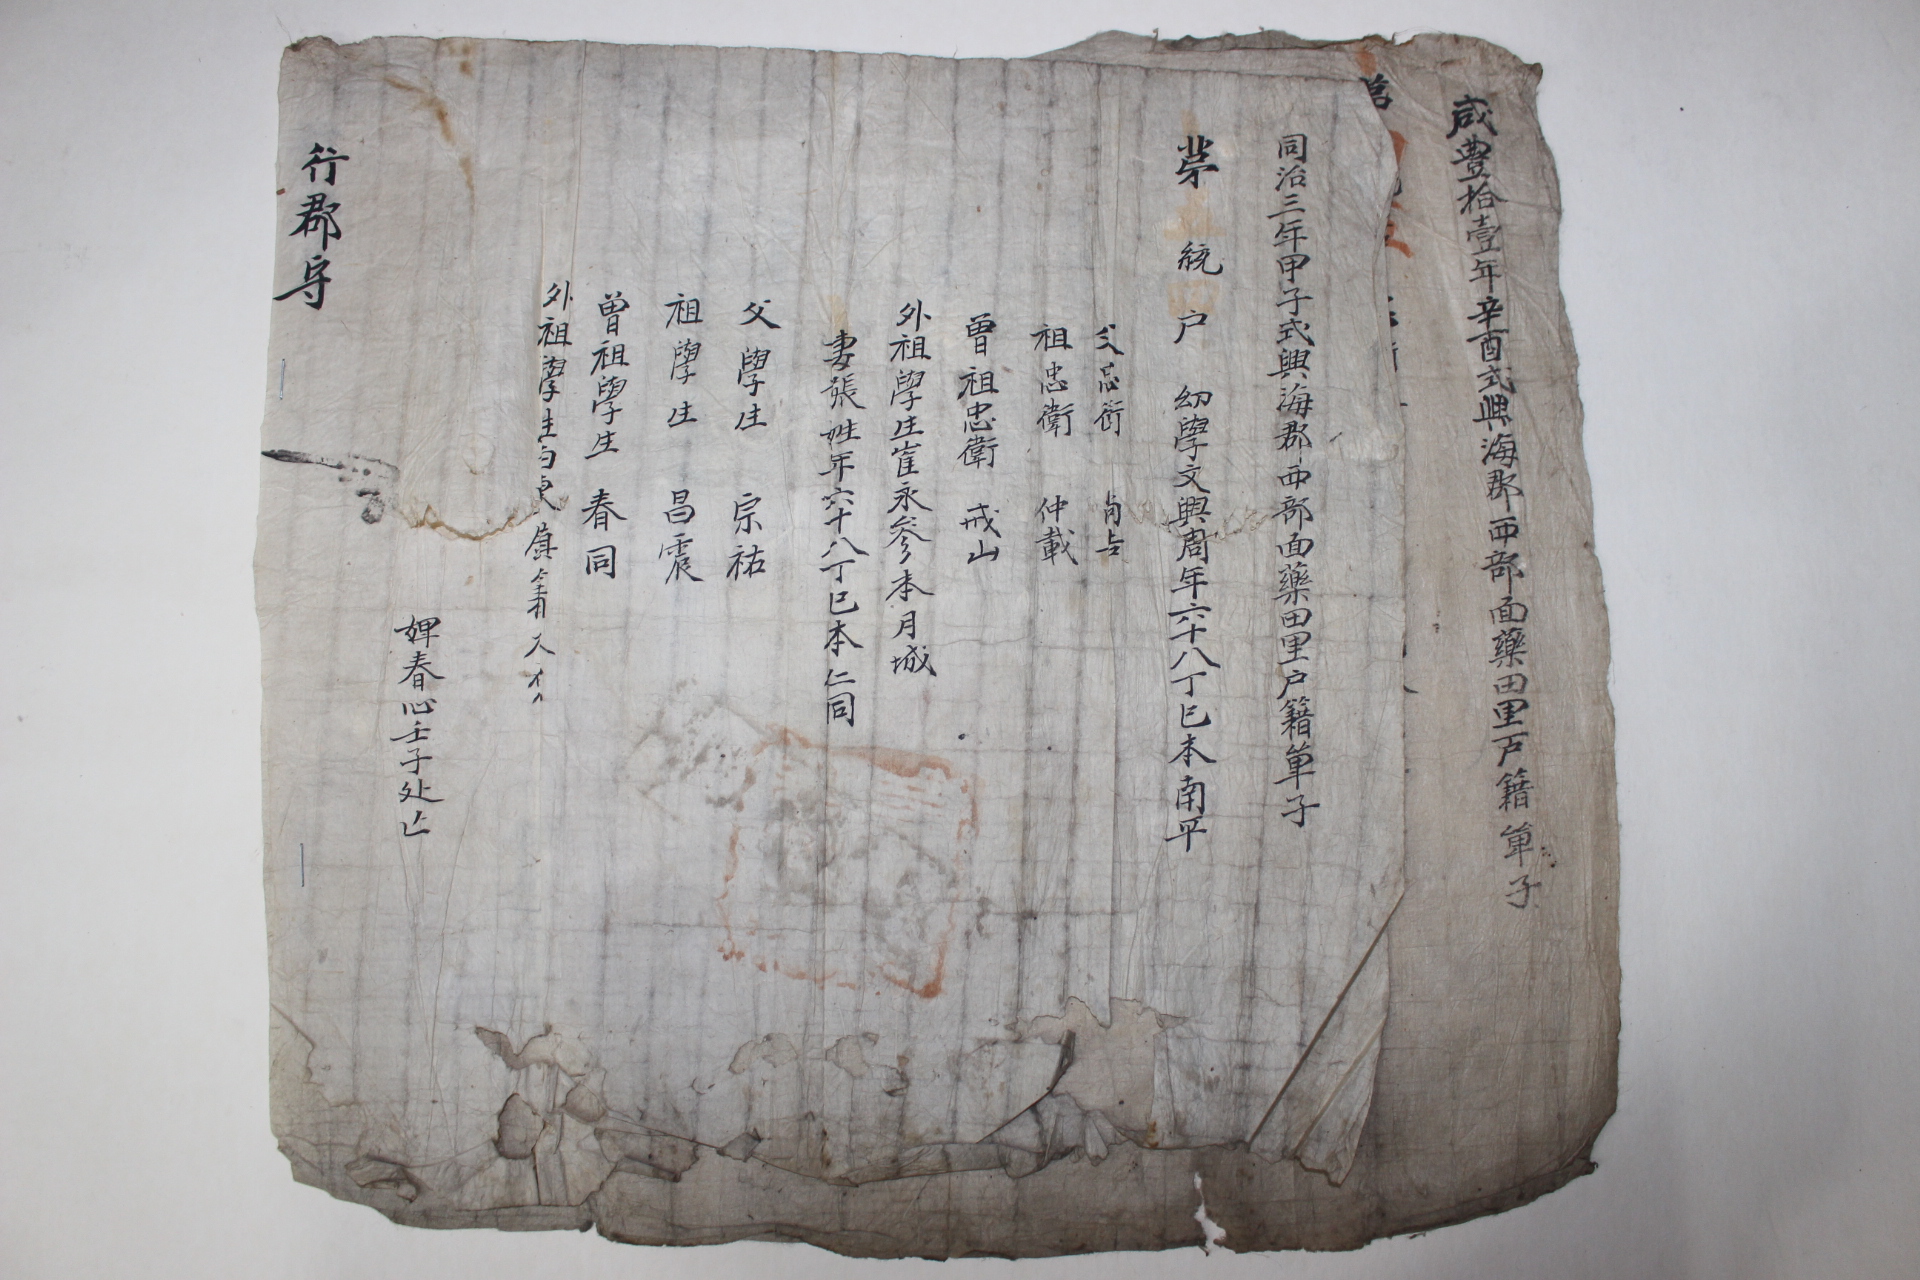 咸豊拾壹年辛酉式興海郡西部面藥田里戶籍單子
同治三年甲子式興海郡西部面藥田里戶籍單子
苐 統 戶 幼學文興周年六十八丁巳本南平
父忠衛
祖忠衛 仲載
曾祖忠衛 戒山
外祖學生崔永參本月城
妻張姓年六十八丁巳本仁同
父學生 宗祐
祖學生 昌震
曾祖學生 春同
外祖學生
婢春心壬子处亡
行郡守